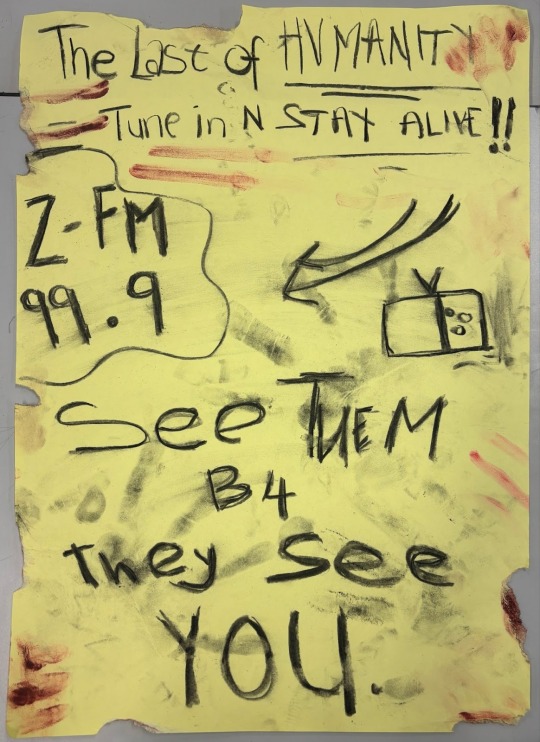 The Last of HUMANITY
— Tune in N STAY ALIVE!!
Z-FM
99.9
See THEM
B4
they See
YOU.